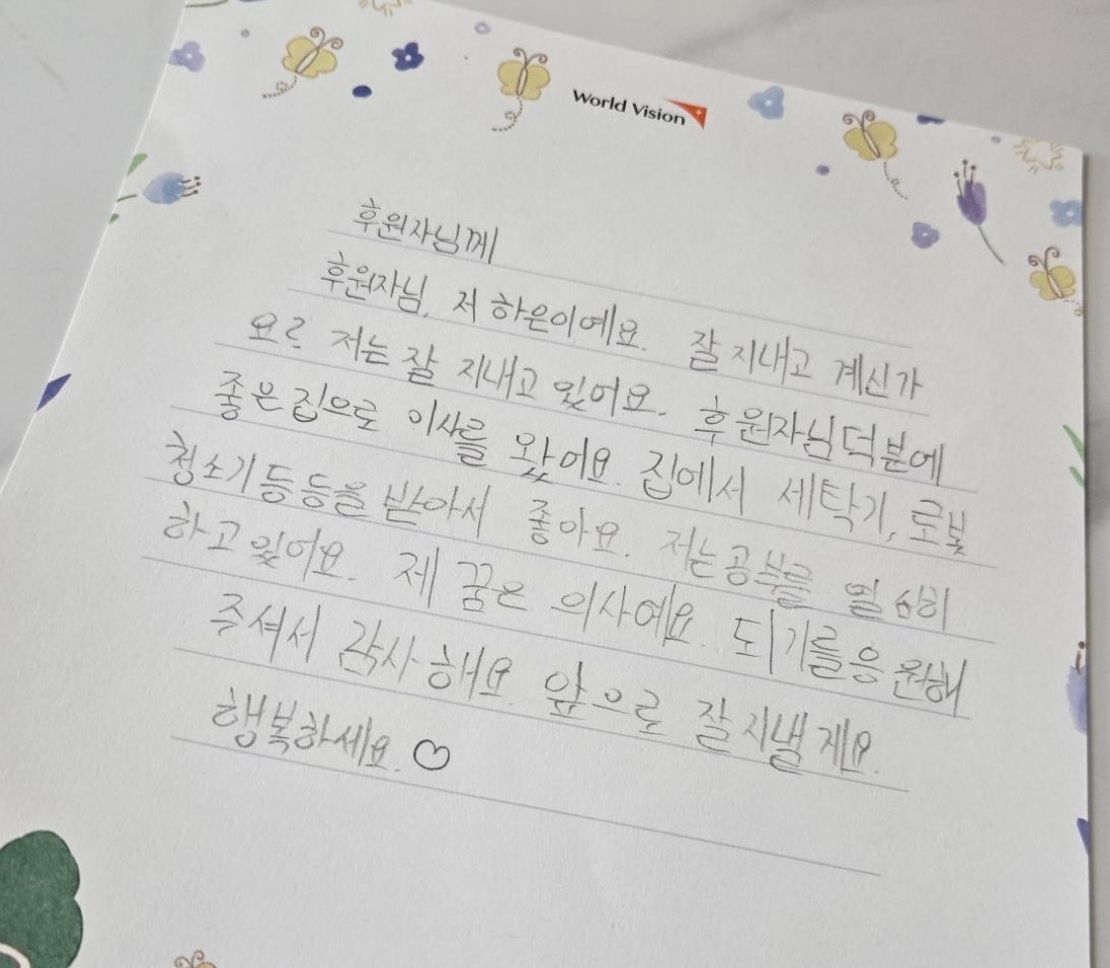 World Vision
후원자님께
후원자님, 저 하은이예요. 잘 지내고 계신가
요? 저는 잘 지내고 있어요. 후원자님덕분에
좋은집으로 이사를 왔어요. 집에서 세탁기, 로봇
청소기등등을 받아서 좋아요. 저는공부를 열심히
하고있어요. 제 꿈은 의사예요. 되기를응원해
주셔서 감사해요. 앞으로 잘지낼게요.
행복하세요. ♡